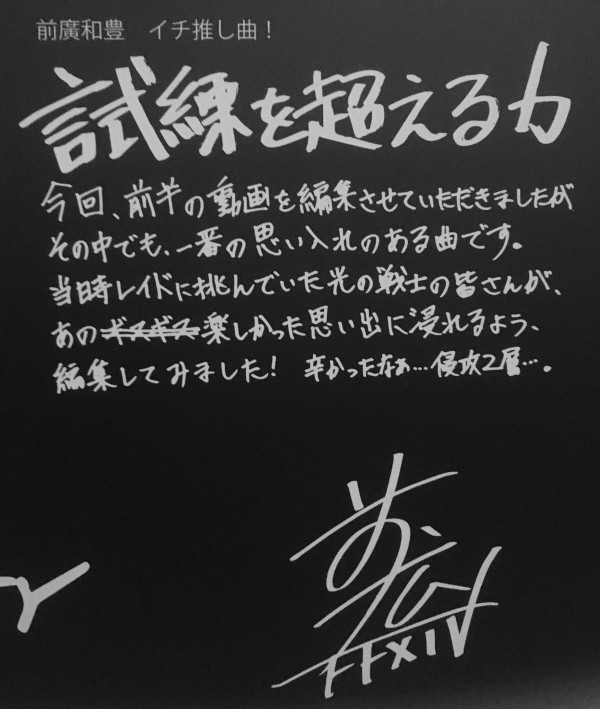 前廣和豊 イチ推し曲！
試練を超える力
今回、前半の動画を編集させていただきましたが
その中でも、一番の思い入れのある曲です。
当時レイドに挑んでいた光の戦士の皆さんが、
あのギスギス楽しかった思い出に浸れるよう、
編集してみました！ 辛かったなぁ…侵攻2層…。
前廣
FFXIV